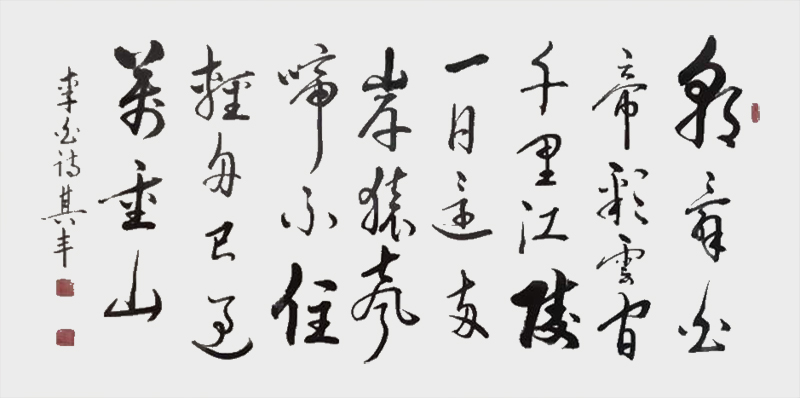 朝辞白
帝彩雲间
千里江陵
一日还两
岸猿声
啼不住
輕舟已過
萬重山
李白詩其丰